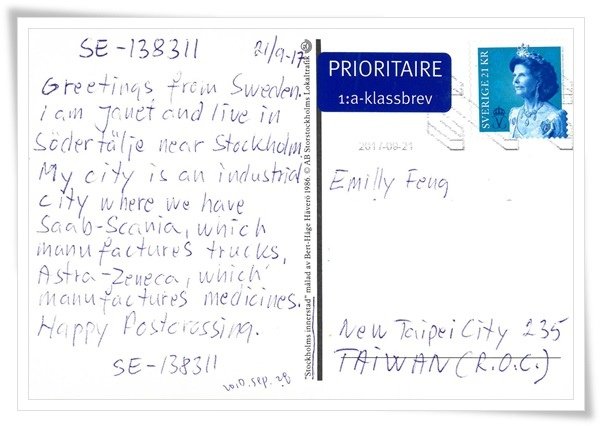 SE-138311
21/9-17
Greetings from Sweden.
i am Janet and live in
Södertälje near Stockholm.
My city is an industrial
city where we have
Saab-Scania, which
manufactures trucks,
Astra-Zeneca, which
manufactures medicines.
Happy Postcrossing.
SE-138311
"Stockholms innerstad" målad av Bert-Håge Häverö 1986. © AB Storstockholms Lokaltrafik
PRIORITAIRE
1:a-klassbrev
SVERIGE 21 KR
2017-09-21
Emilly Feng
New Taipei City 235
TAIWAN (R.O.C.)